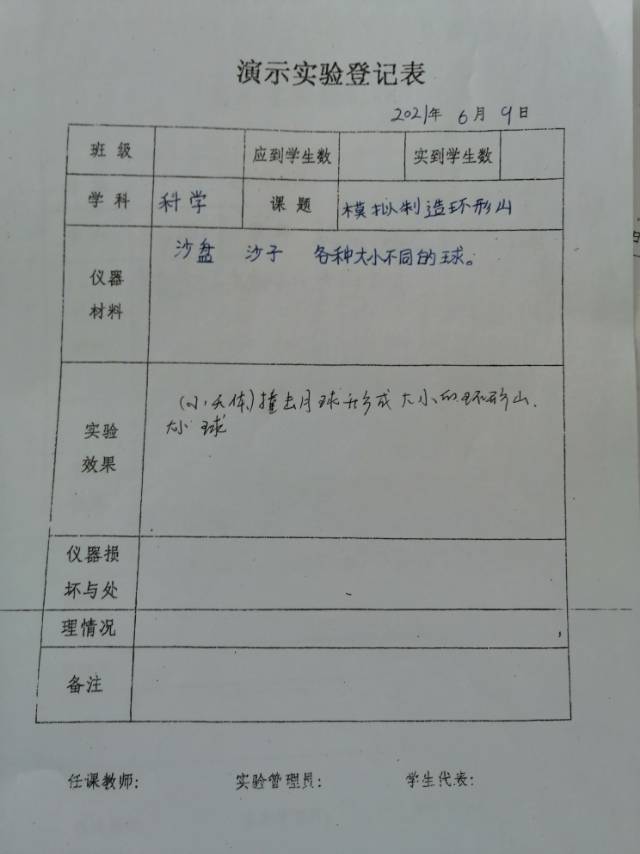 演示实验登记表
2021年 6月 9日
班级 应到学生数 实到学生数
学科 科学 课题 模拟制造环形山
仪器材料 沙盘 沙子 各种大小不同的球。
实验效果 (小天体)撞击月球形成大小的环形山.
大小球
仪器损
坏与处
理情况
备注
任课教师: 实验管理员: 学生代表: